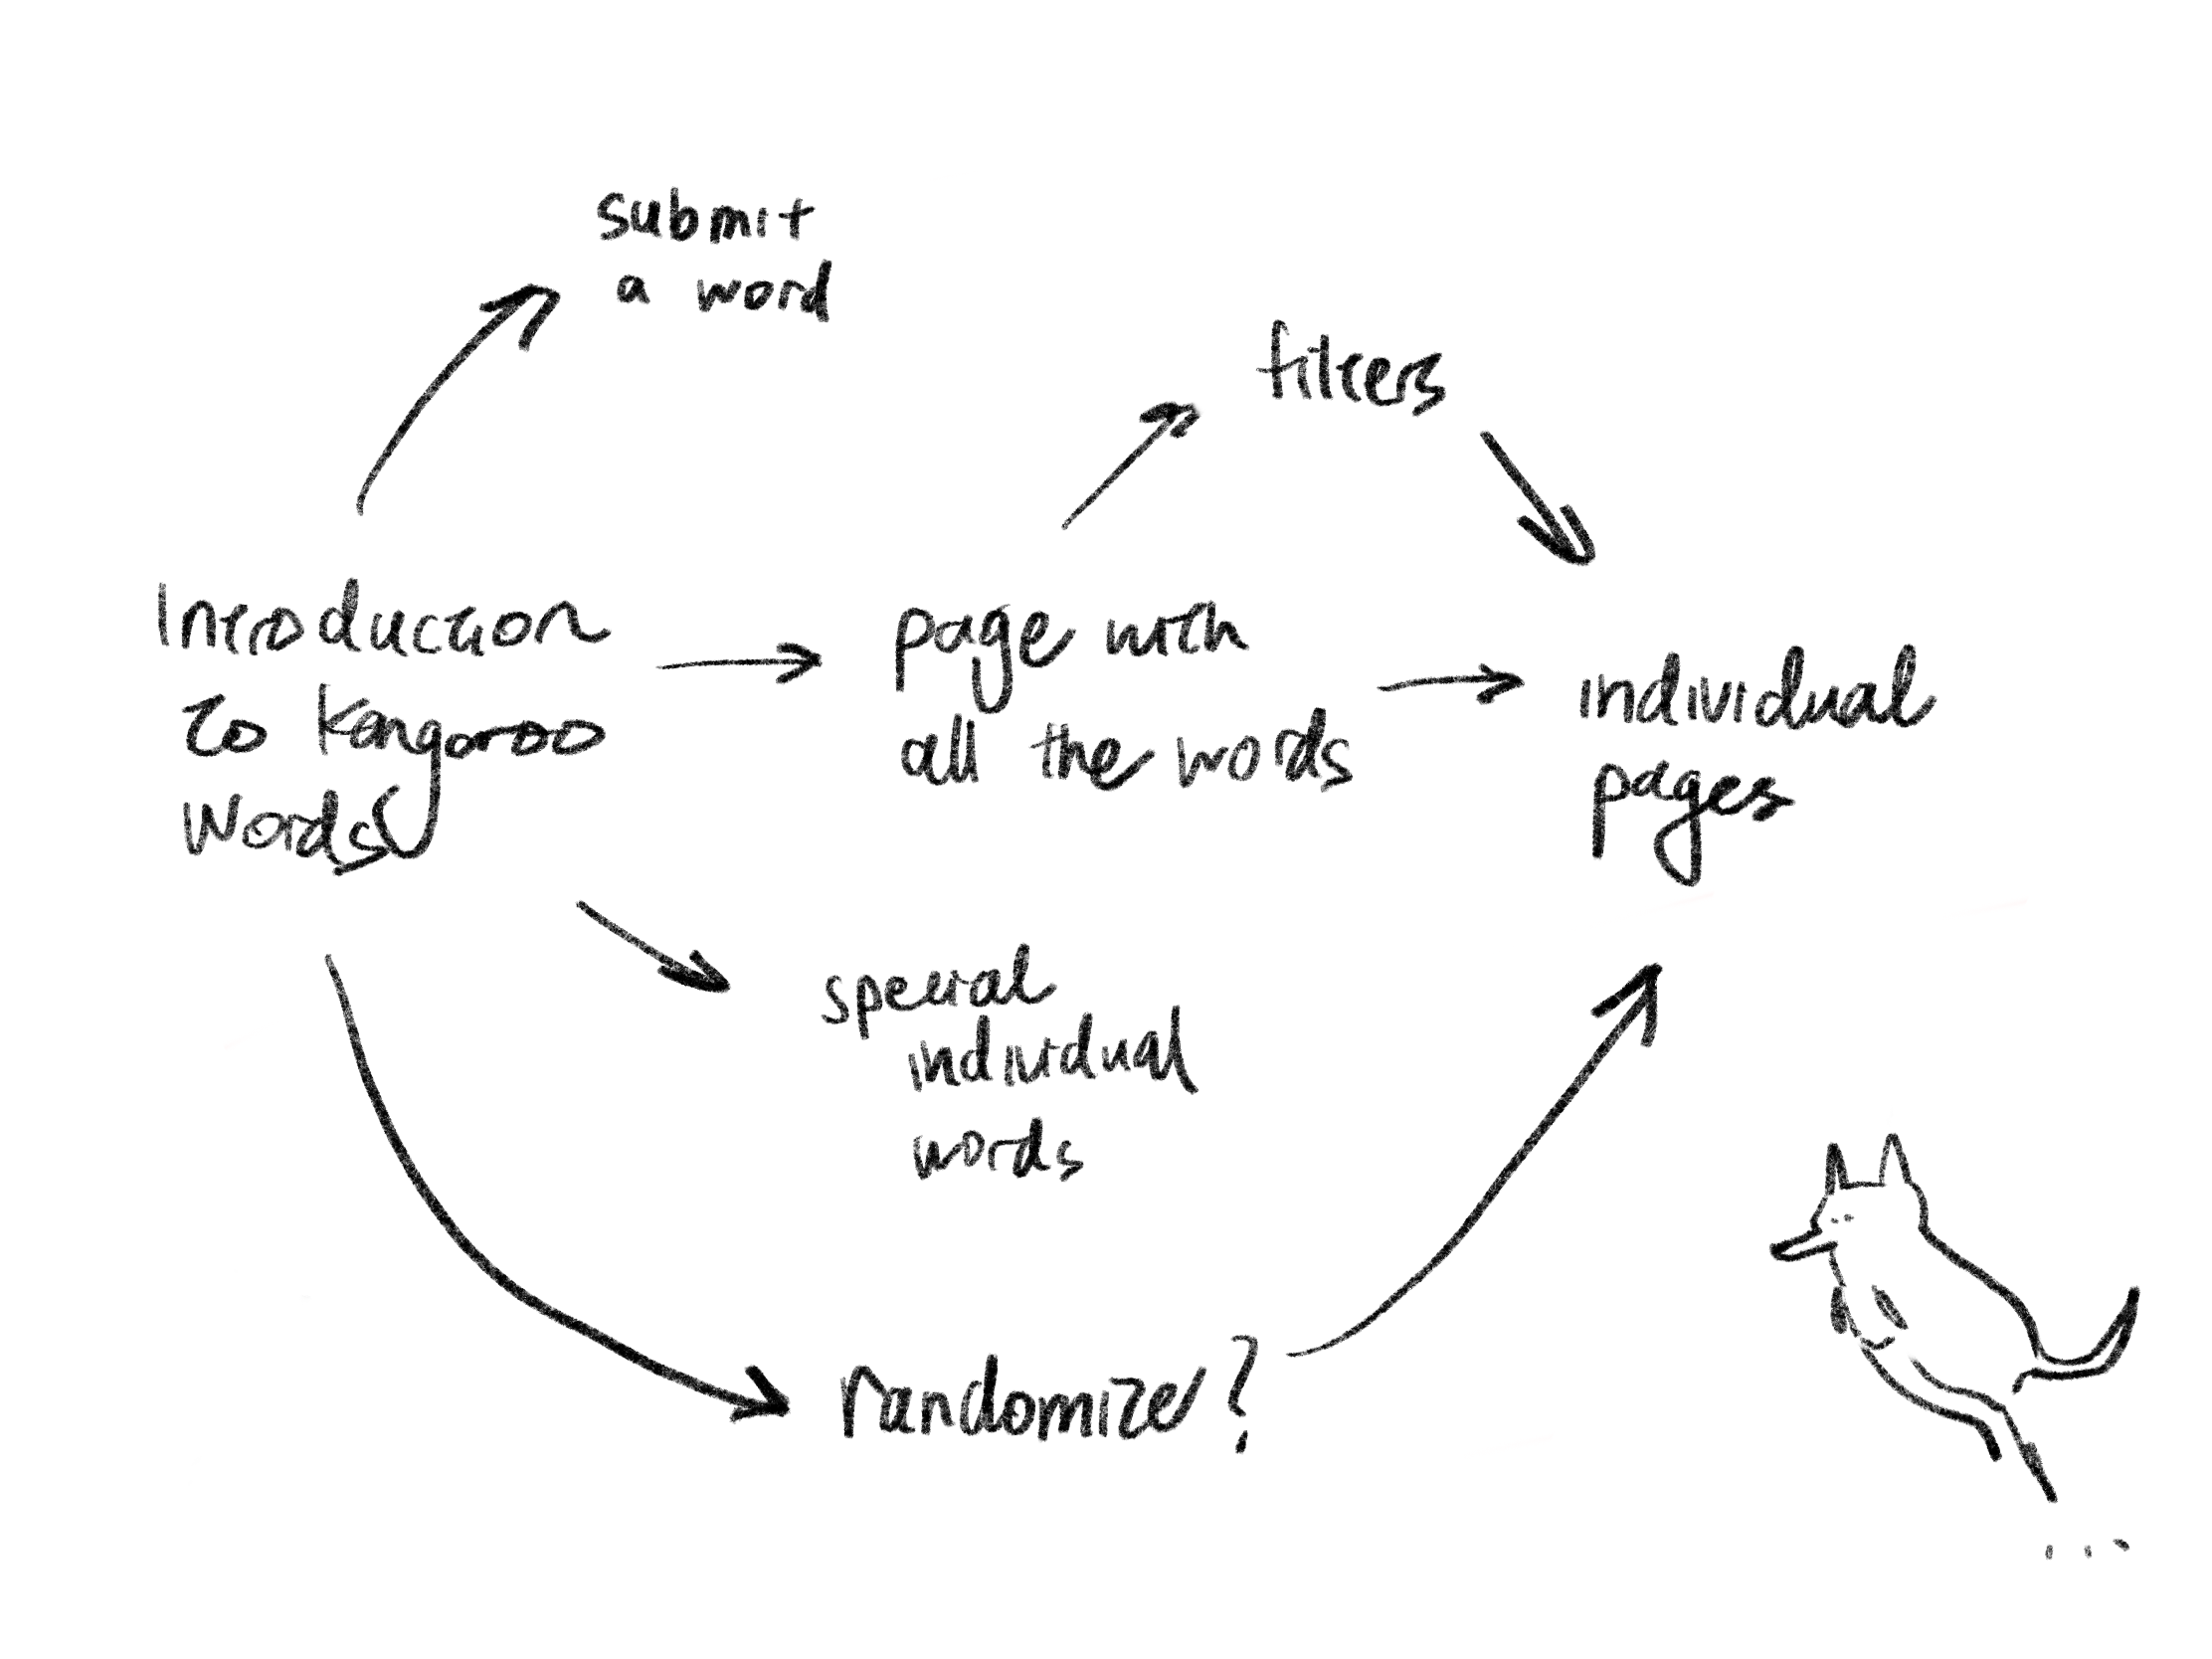 submit
a word
filters
Introduction
to Kangaroo
Words
page with
all the words
individual
pages
special
individual
words
randomize?
...